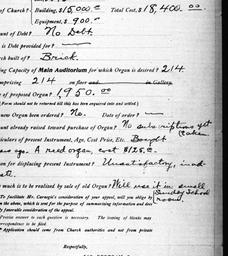 of Church? Building, $15,000.00 Total Cost, $18,400.00
Equipment, $900.00
unt of Debt? No Debt.
is Debt provided for?
rch built of? Brick.
ing Capacity of Main Auditorium for which Organ is desired? 214
mprising 214 on floor and in Gallery.
of Organ desired? $1,950.00
(Form should not be returned till this has been enquired into and settled.)
new Organ been ordered? No. Date of order?
unt already raised toward purchase of Organ? No subscriptions yet taken
iculars of present Instrument, Age, Cost Price, Etc. Bought
ears ago. A reed organ, cost $125.00
on for displacing present Instrument? Unsatisfactory, inad-
ate.
much is to be realized by sale of old Organ? Will use it in small Sunday School room.
To facilitate Mr. Carnegie's consideration of your appeal, will you oblige by
in the above, which is sent for the purpose of summarizing information and
favorable consideration of appeal.
Precise answer to each question is necessary. The leaving of blanks may
correspondence to be required.
Application should come from Church authorities and not from private
Respectfully,